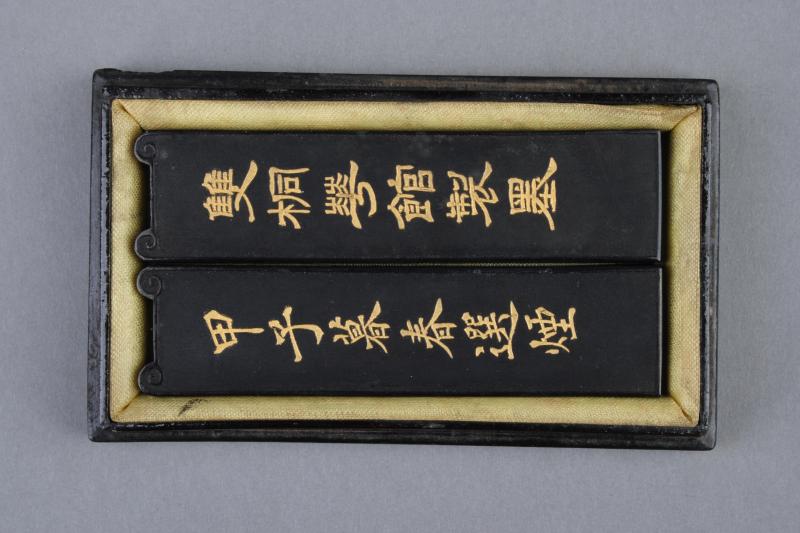 雙桐華館製墨
甲子暮春選煙